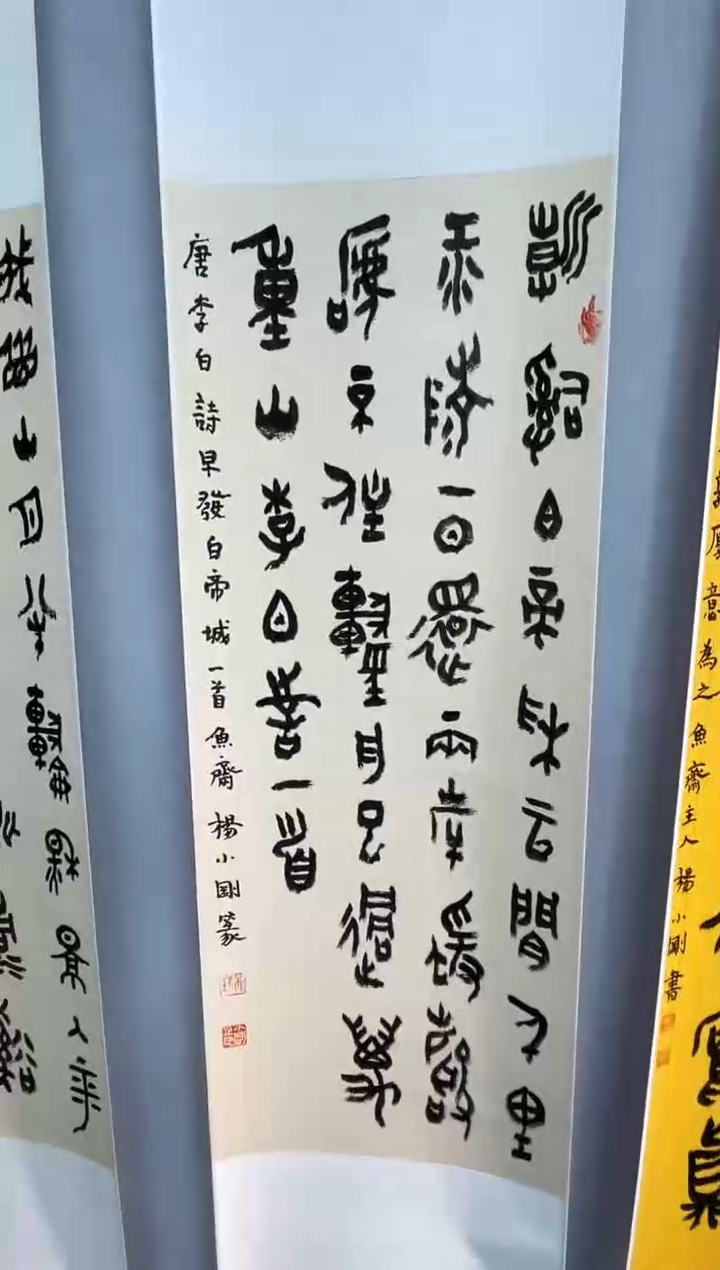 原意為之魚齋主人楊小剛書
朝辭白帝采云間千里
江陵一日還兩岸猿聲
嗁不住輕舟已過萬
重山李白詩一首
唐李白詩早發白帝城一首魚齋楊小剛篆
峨眉山月半輪秋景入平